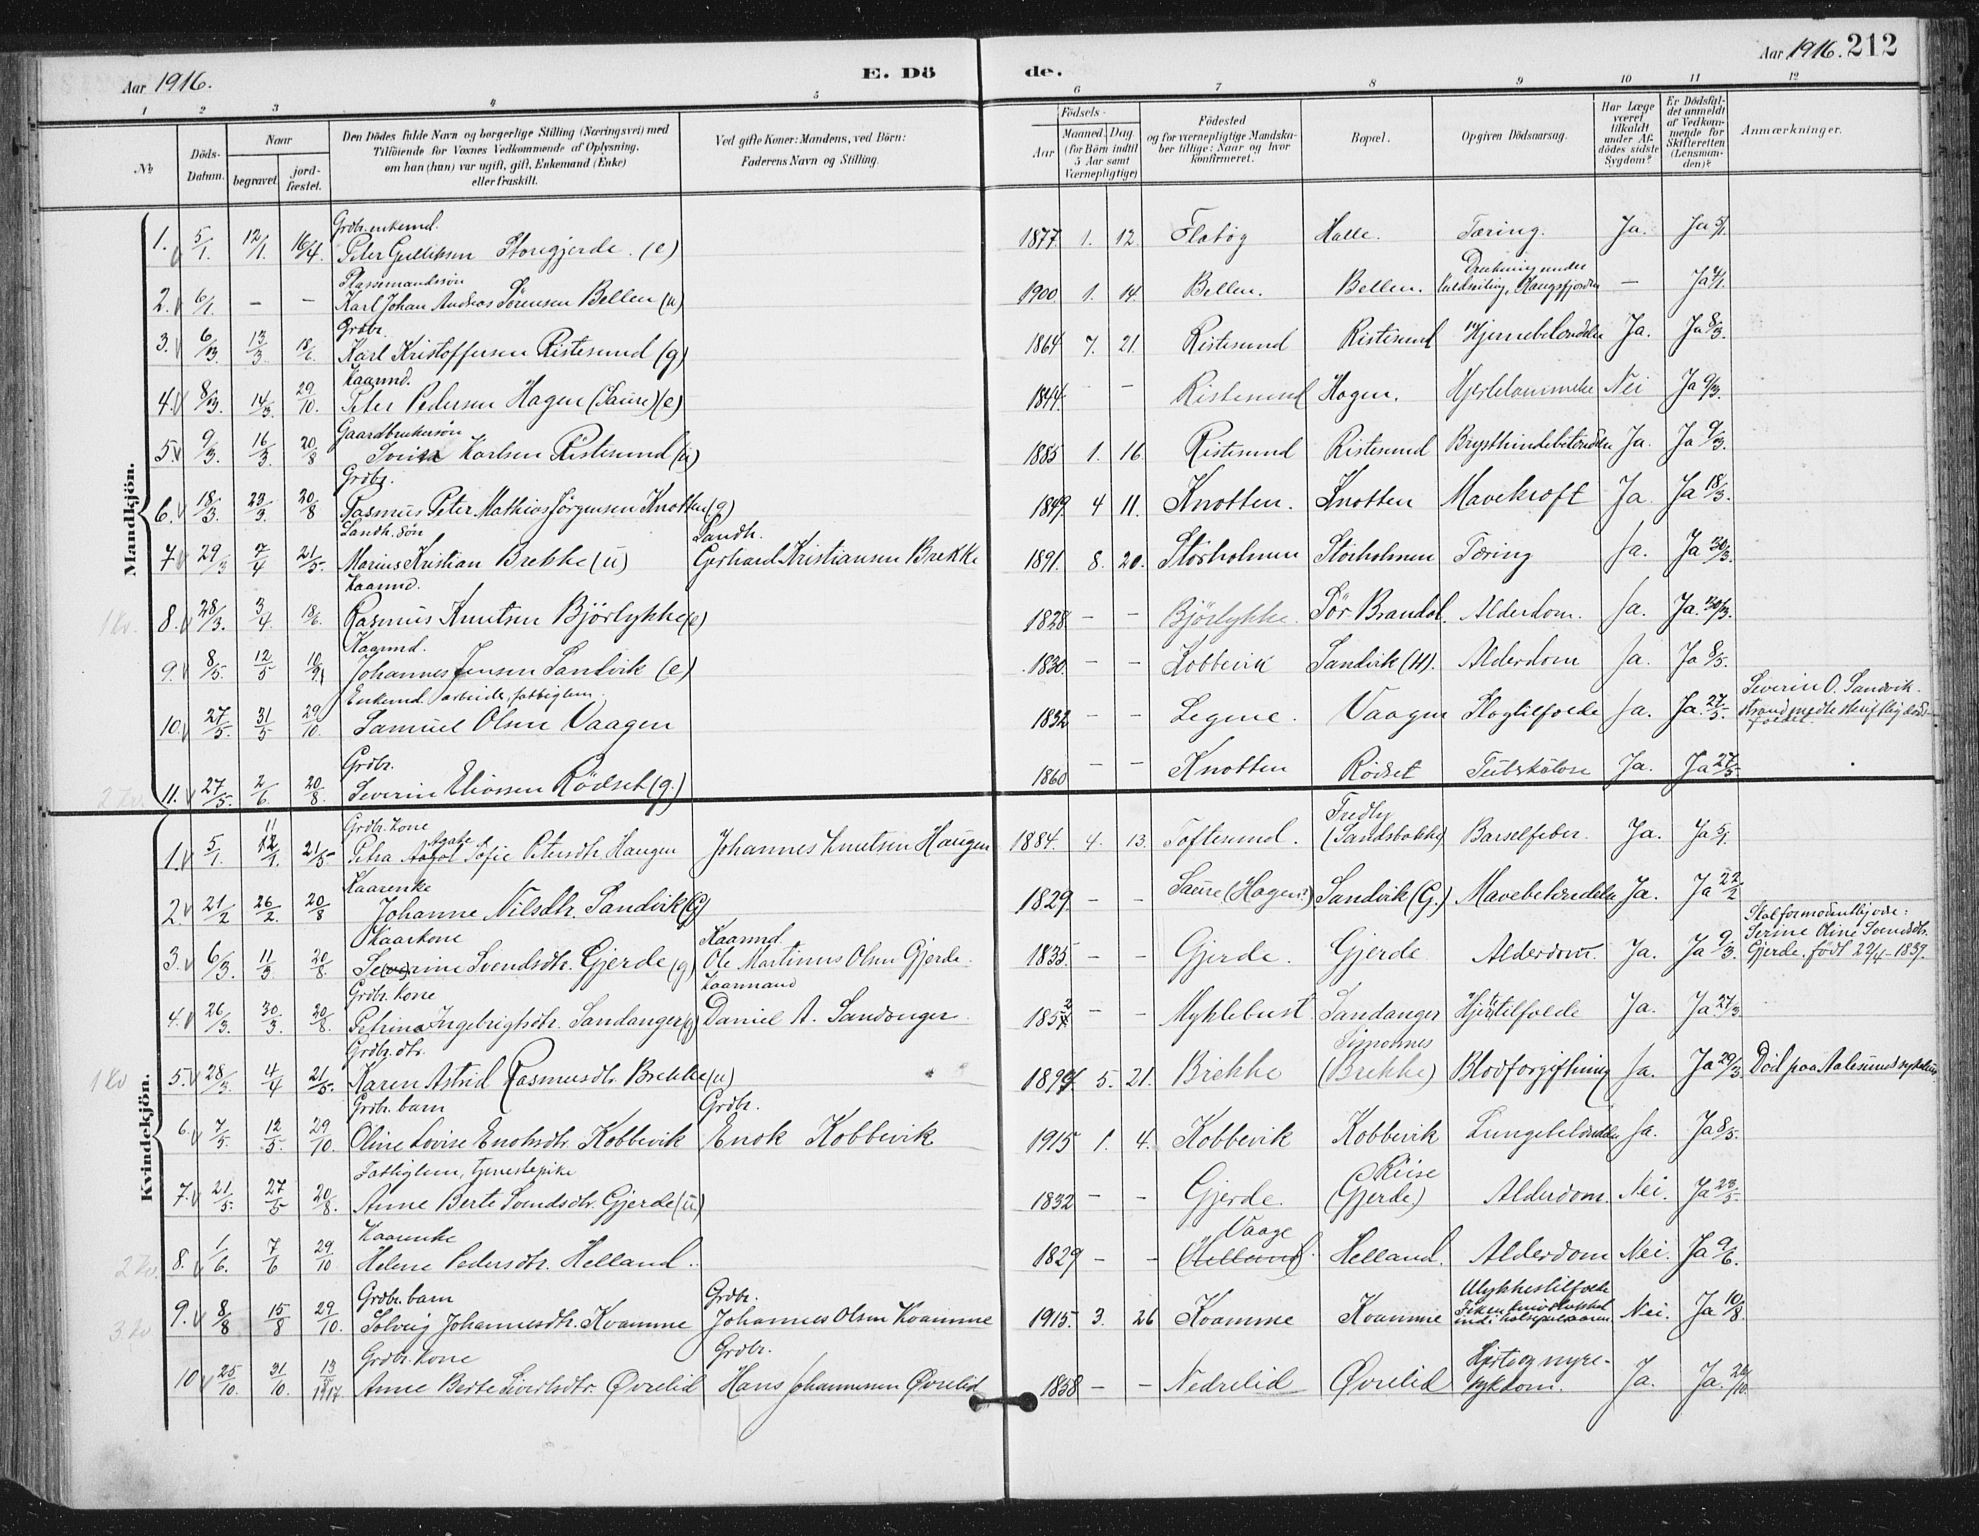 Aar 1916. E. Dö
de. Aar 1916. 212
1 2 3 4 5 6 7 8 9 10 11 12
№ Döds-Datum. Naar begravet. jordfæstet. Den Dödes fulde Navn og borgerlige Stilling (Næringsvei) med Tilföiende for Voxnes Vedkommende af Oplysning, om han (hun) var ugift, gift, Enkemand (Enke) eller fraskilt. Ved gifte Koner: Mandens, ved Börn: Faderens Navn og Stilling.
Födsels- Aar Maaned Dag (for Börn indtil 5 Aar samt Værnepligtige) Födested og for værnepligtige Mandskaber tillige: Naar og hvor konfirmeret. Bopæl. Opgiven Dödsaarsag. Har Læge været tilkaldt under Afdödes sidste Sygdom? Er Dödsfaldet anmeldt af Vedkommende for Skifteretten (Lensmanden)? Anmærkninger.
Mandkjön.
1. 5/1. 12/1. 16/4. Grdbr. enkemd. Peter Gulliksen Storegjerde. (e) 1877 1. 12. Flatøy Halle. Tæring. Ja. Ja 5/1.
2. 6/1. – – Plassemandssön Karl Johan Andreas Sørensen Bellen (u) 1900 1. 14. Bellen. Bellen. Drukning under — Ja
3. 6/3. 13/3 18/6. Grdbr. Karl Kristoffersen Ristesund (g) 1864 7. 21. Ristesund Ristesund Hjernebetændelse Ja. Ja 8/3.
4. 8/3. 14/3 29/10. Kaarmd. Peter Pedersen Hagen (Saure) (e) 1844. – Ristesund Hagen. Hjertelammelse Nei Ja 9/3.
5. 9/3. 16/3 20/8 Gaardbrukersön Karlsen Ristesund (u) 1885 1. 16 Ristesund Ristesund Brysthindebetændelse Ja. Ja 9/3.
6. 18/3. 23/3. 20/8 Grdbr. Rasmus Peter Mathias Jörgensen Knotten (g) 1849 4 11. Knotten. Knotten Mavekræft Ja. Ja 18/3.
7. 29/3 7/4 21/5. Landh. sön Marius Kristian Brekke (u) Landh. Gerhard Kristiansen Brekke 1891. 8. 20. Storholmen Storholmen Tæring Ja. Ja 30/3.
8. 28/3. 3/4. 18/6. Kaarmd. Rasmus Knutsen Bjørlykke (e) 1828 – – Bjørlykke. Sör-Brandal. Alderdom. Ja. Ja. 30/3.
9. 8/5. 12/5 10/9 Kaarmd. Johannes Jensen Sandvik (e) 1830 – – Kobbevik Sandvik (H). Alderdom Ja. Ja 8/5.
10. 27/5. 31/5 29/10. Enkemd. arbeider, fattiglem. Samuel Olsen Vaagen 1832 – – Legene. Vaagen Slagtilfælde Ja. Ja. 27/5. Severin O. Sandvik.
11. 27/5. 2/6. 20/8. Grdbr. Severin Eliassen Rödset (g.) 1860 – – Knotten Rödset Tuberkulose Ja. Ja 27/5.
Kvindekjön.
1. 5/1. 11 12/1. 21/5 Grdbr. kone Petra Agate Sofie Petersdtr. Haugen Johannes Knutsen Haugen 1884. 4. 13. Toftesund. Fredly (Sandsbakk) Barselfeber. Ja. Ja 5/1.
2. 21/2 26/2. 20/8 Kaarenke Johanne Nilsdtr. Sandvik (G) 1829. – – Saure (Hagen) Sandvik (G.) Mavebetændelse Ja. Ja 22/2
3. 6/3. 11/3 20/8. Kaarkone Severine Svendsdtr. Gjerde (g) Kaarmd. Ole Martinus Olsen Gjerde. 1835. – – Gjerde. Gjerde Alderdom. Ja. Ja 9/3. Skal formodentlig være: Serine Oline Svendsdtr. Gjerde, født 22/4-1837.
4. 26/3. 30/3. 20/8. Grdbr. kone Petrina Ingebrigtsdtr. Sandanger (g) Kaarmand Daniel A. Sandanger. 1852 – – Myklebust Sandanger Hjertetilfælde Ja. Ja 27/3.
5. 28/3 4/4 21/5. Grdbr. dtr. Karen Astrid Rasmusdtr. Brekke (u) 5. 21. Brekke Simonnes (Brekke) Blodforgiftning Ja. Ja 29/3. Död paa Aalesunds sykehus
6. 7/5. 12/5. 29/10. Grdbr. barn Oline Lovise Enoksdtr. Kobbevik Grdbr. Enok Kobbevik 1915 1. 4. Kobbevik Kobbevik Lungebetændelse Ja. Ja 8/5.
7. 21/5. 27/5 20/8. Fattiglem, tjenestepike Anne Berte Svendsdtr. Gjerde (u) 1832 – – Gjerde. Riise (Gjerde) Alderdom. Nei. Ja 23/5.
8. 1/6. 7/6 29/10 Kaarenke Helene Pedersdtr. Helland. 1829 – – Vaage (Helland). Helland. Alderdom Nei. Ja 9/6.
9. 8/8 15/8 29/10. Grdbr. barn Solveig Johannesdtr. Kvamme Grdbr. Johannes Olsen Kvamme 1915. 3. 26 Kvamme Kvamme Ulykkestilfælde Nei. Ja 10/8.
10 25/10. 31/10. 13/1917 Grdbr. kone Anne Berte Sivertsdtr. Øvrelid Grdbr. Hans Johannessen Øvrelid 1858 – – Nedrelid Øvrelid Hjerte og nyresykdom. Ja. Ja. 26/10.